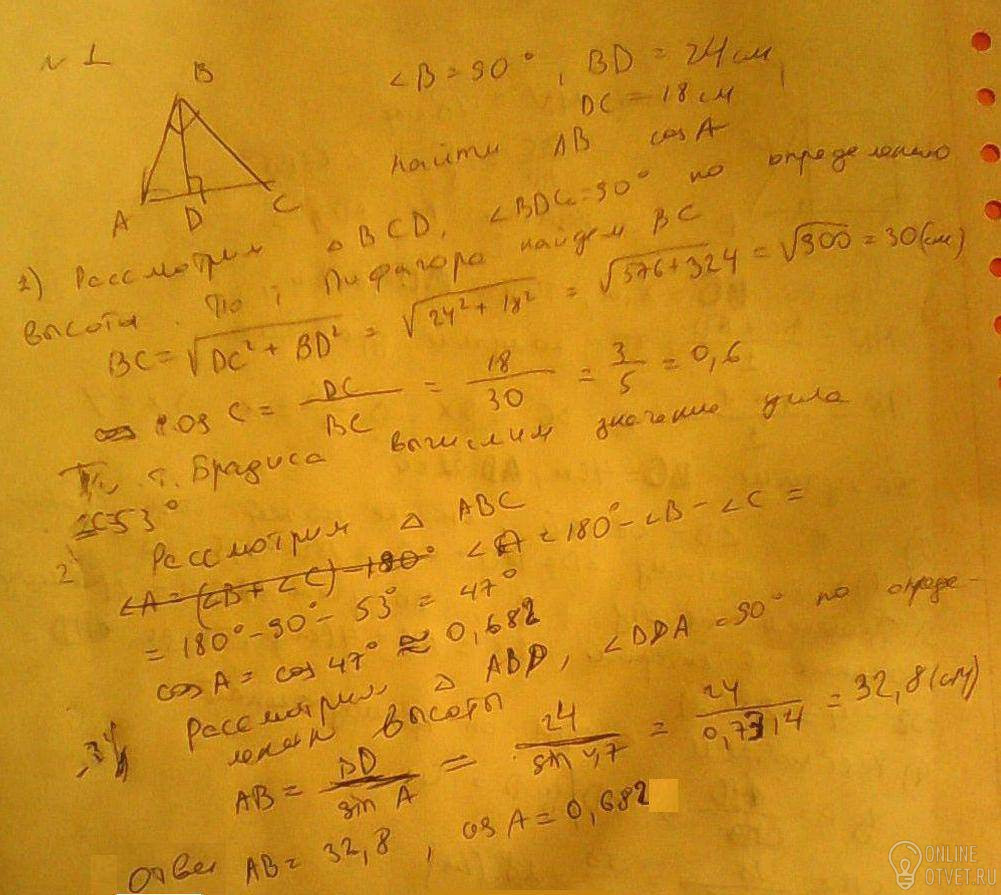 N 1
B
A D C
∠B = 90°, BD = 24 см,
DC = 18 см
найти AB cos A
1) Рассмотрим △ BCD, ∠BDC = 90° по определению
высоты. По т. Пифагора найдем BC
BC = √DC² + BD² = √24² + 18² = √576 + 324 = √900 = 30 (см)
cos C = DC/BC = 18/30 = 3/5 = 0,6
т. Брадиса вычислим значение угла
∠C=53°
2 Рассмотрим △ ABC
∠A = (∠B + ∠C) - 180° ∠A = 180° - ∠B - ∠C =
= 180° - 90° - 53° = 47°
cos A = cos 47° ≈ 0,682
3) Рассмотрим △ ABD, ∠BDA = 90° по опреде-
лению высоты
AB = BD/sin A = 24/sin 47 = 24/0,7314 = 32,8 (см)
Ответ AB = 32,8, cos A = 0,682
ONLINE
OTVET.RU